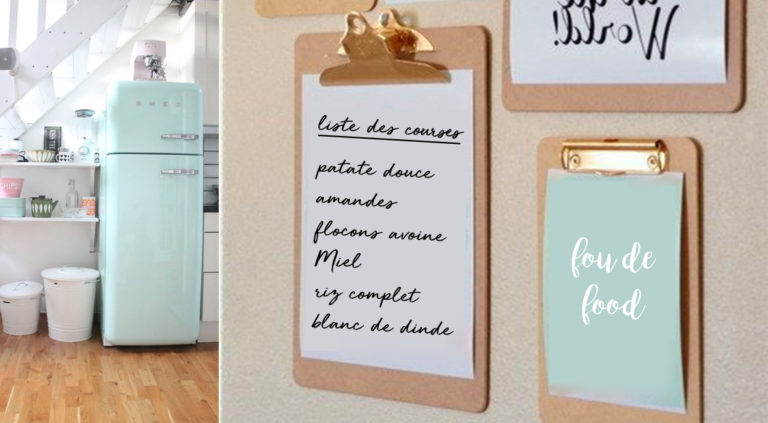 SMEG
CHIPS
liste des courses
patate douce
amandes
flocons avoine
Miel
riz complet
blanc de dinde
World!
fou de
food